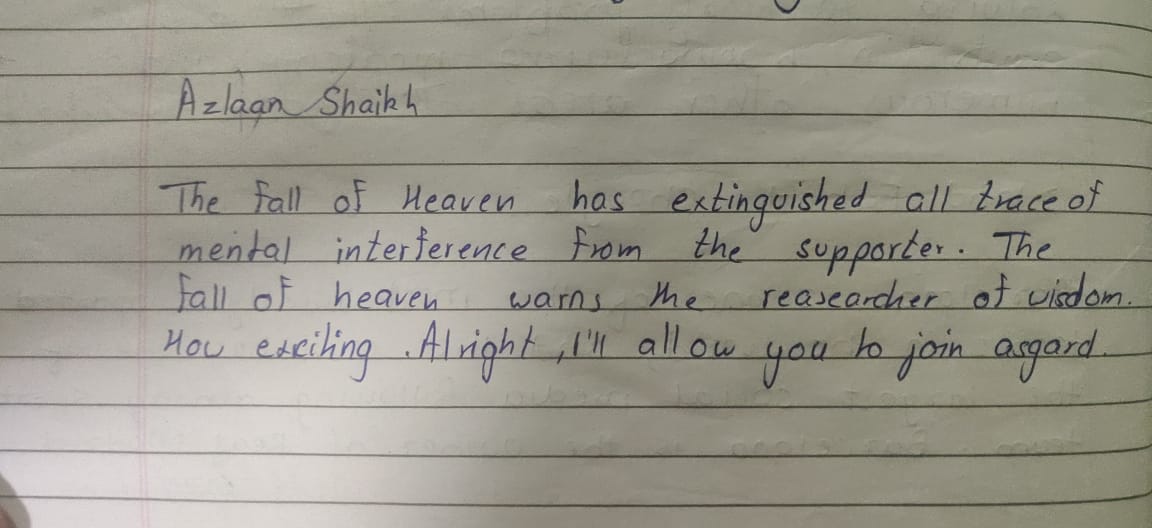 Azlaan Shaikh
The fall of Heaven has extinguished all trace of
mental interference from the supporter. The
fall of heaven warns the reasearcher of wisdom.
How exciting. Alright, I'll allow you to join asgard.